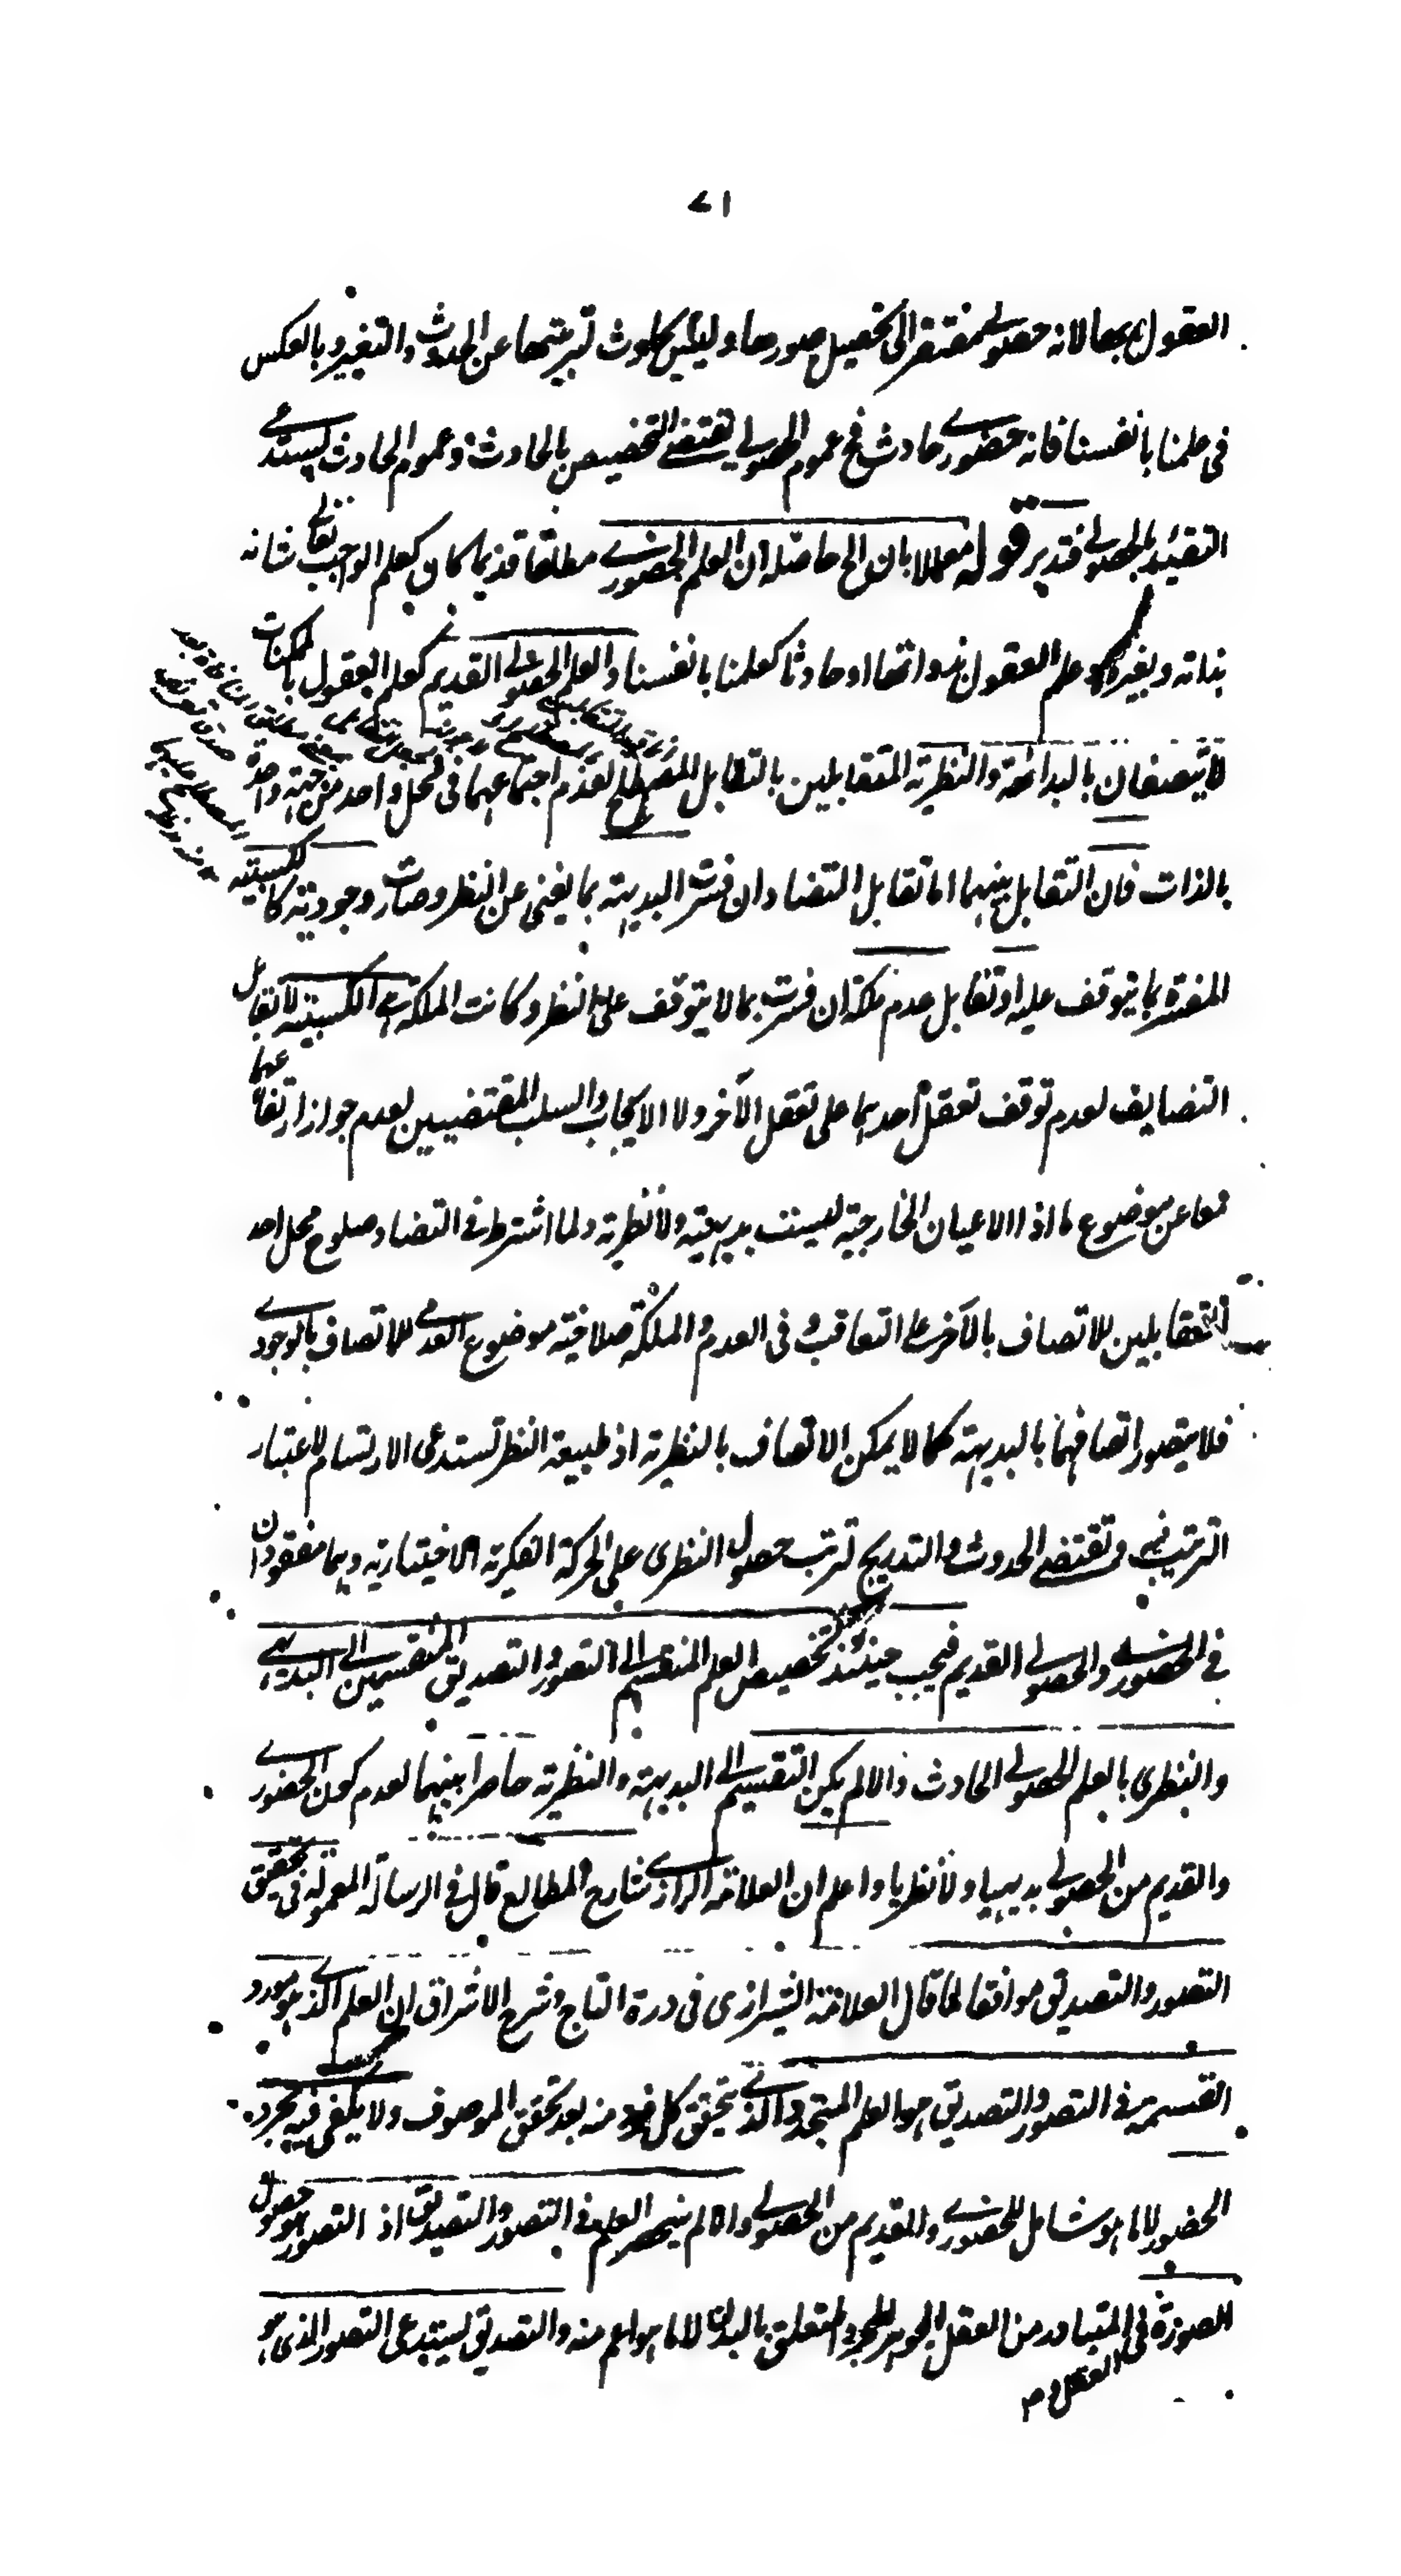 ٧١
العقول بها لانه حصولي مفتقر الى تحصيل صورها وليس بحادث لتبريتها عن الحدوث والتغير وبالعكس
في علمنا بانفسنا فانه حضوري حادث فح عموم الحصولي يقتضي التخصيص بالحادث وعموم الحادث يستدعي
التقييد بالحصولي فتدبر قوله معللا بان الخ حاصله ان العلم الحضوري مطلقا قديما كان كعلم الواجب تعالى شانه
بذاته وبغيره وعلم العقول بذواتها او حادثا كعلمنا بانفسنا والعلم الحصولي القديم كعلم العقول بالممكنات
لا يتصفان بالبداهة والنظرية المتقابلين بالتقابل المصطلح لعدم اجتماعهما في محل واحد من جهة واحدة
بالذات فان التقابل بينهما اما تقابل التضاد ان فسرت البديهة بما يغني عن النظر وصارت وجودية كالكسبية
المفسرة بما يتوقف عليه او تقابل عدم ملكة ان فسرت بما لا يتوقف على النظر وكانت الملكة هي الكسبية لا تقابل
التضايف لعدم توقف تعقل احديهما على تعقل الآخر ولا الايجاب والسلب المقتضيين لعدم جواز ارتفاعهما
معا عن موضوع ما اذ الاعيان الخارجية ليست بديهية ولا نظرية ولما اشترط في التضاد صلوح محل احد
المتقابلين للاتصاف بالآخر على التعاقب وفي العدم والملكة صلاحية موضوع العدمي للاتصاف بالوجودي
فلا يتصور اتصافهما بالبديهة كما لا يمكن الاتصاف بالنظرية اذ طبيعة النظر تستدعي الارتسام لاعتبار
الترتيب فيه وتقتضي الحدوث والتدريج لترتب حصول النظري على الحركة الفكرية الاختيارية وهما مفقودان
في الحضوري والحصولي القديم فيجب حينئذ تخصيص العلم المنقسم الى التصور والتصديق المنقسمين الى البديهي
والنظري بالعلم الحصولي الحادث والا لم يكن التقسيم الى البديهة والنظرية حاصرا بينهما لعدم كون الحضوري
والقديم من الحصولي بديهيا ولا نظريا واعلم ان العلامة الرازي شارح المطالع قال في الرسالة المعمولة في تحقيق
التصور والتصديق موافقا لما قال العلامة الشيرازي في درة التاج وشرح الاشراق ان العلم الذي هو مورد
القسمة في التصور والتصديق هو العلم المتجدد الذي يتحقق كل فرد منه بعد تحقق الموصوف ولا يكفي فيه مجرد
الحضور لا ما هو شامل للحضوري والقديم من الحصولي والا لم ينحصر العلم في التصور والتصديق اذ التصور هو حصول
الصورة في العقل والمتبادر من العقل الجوهر المجرد المتعلق بالبدن لا ما هو اعم منه والتصديق يستدعي التصور الذي هو